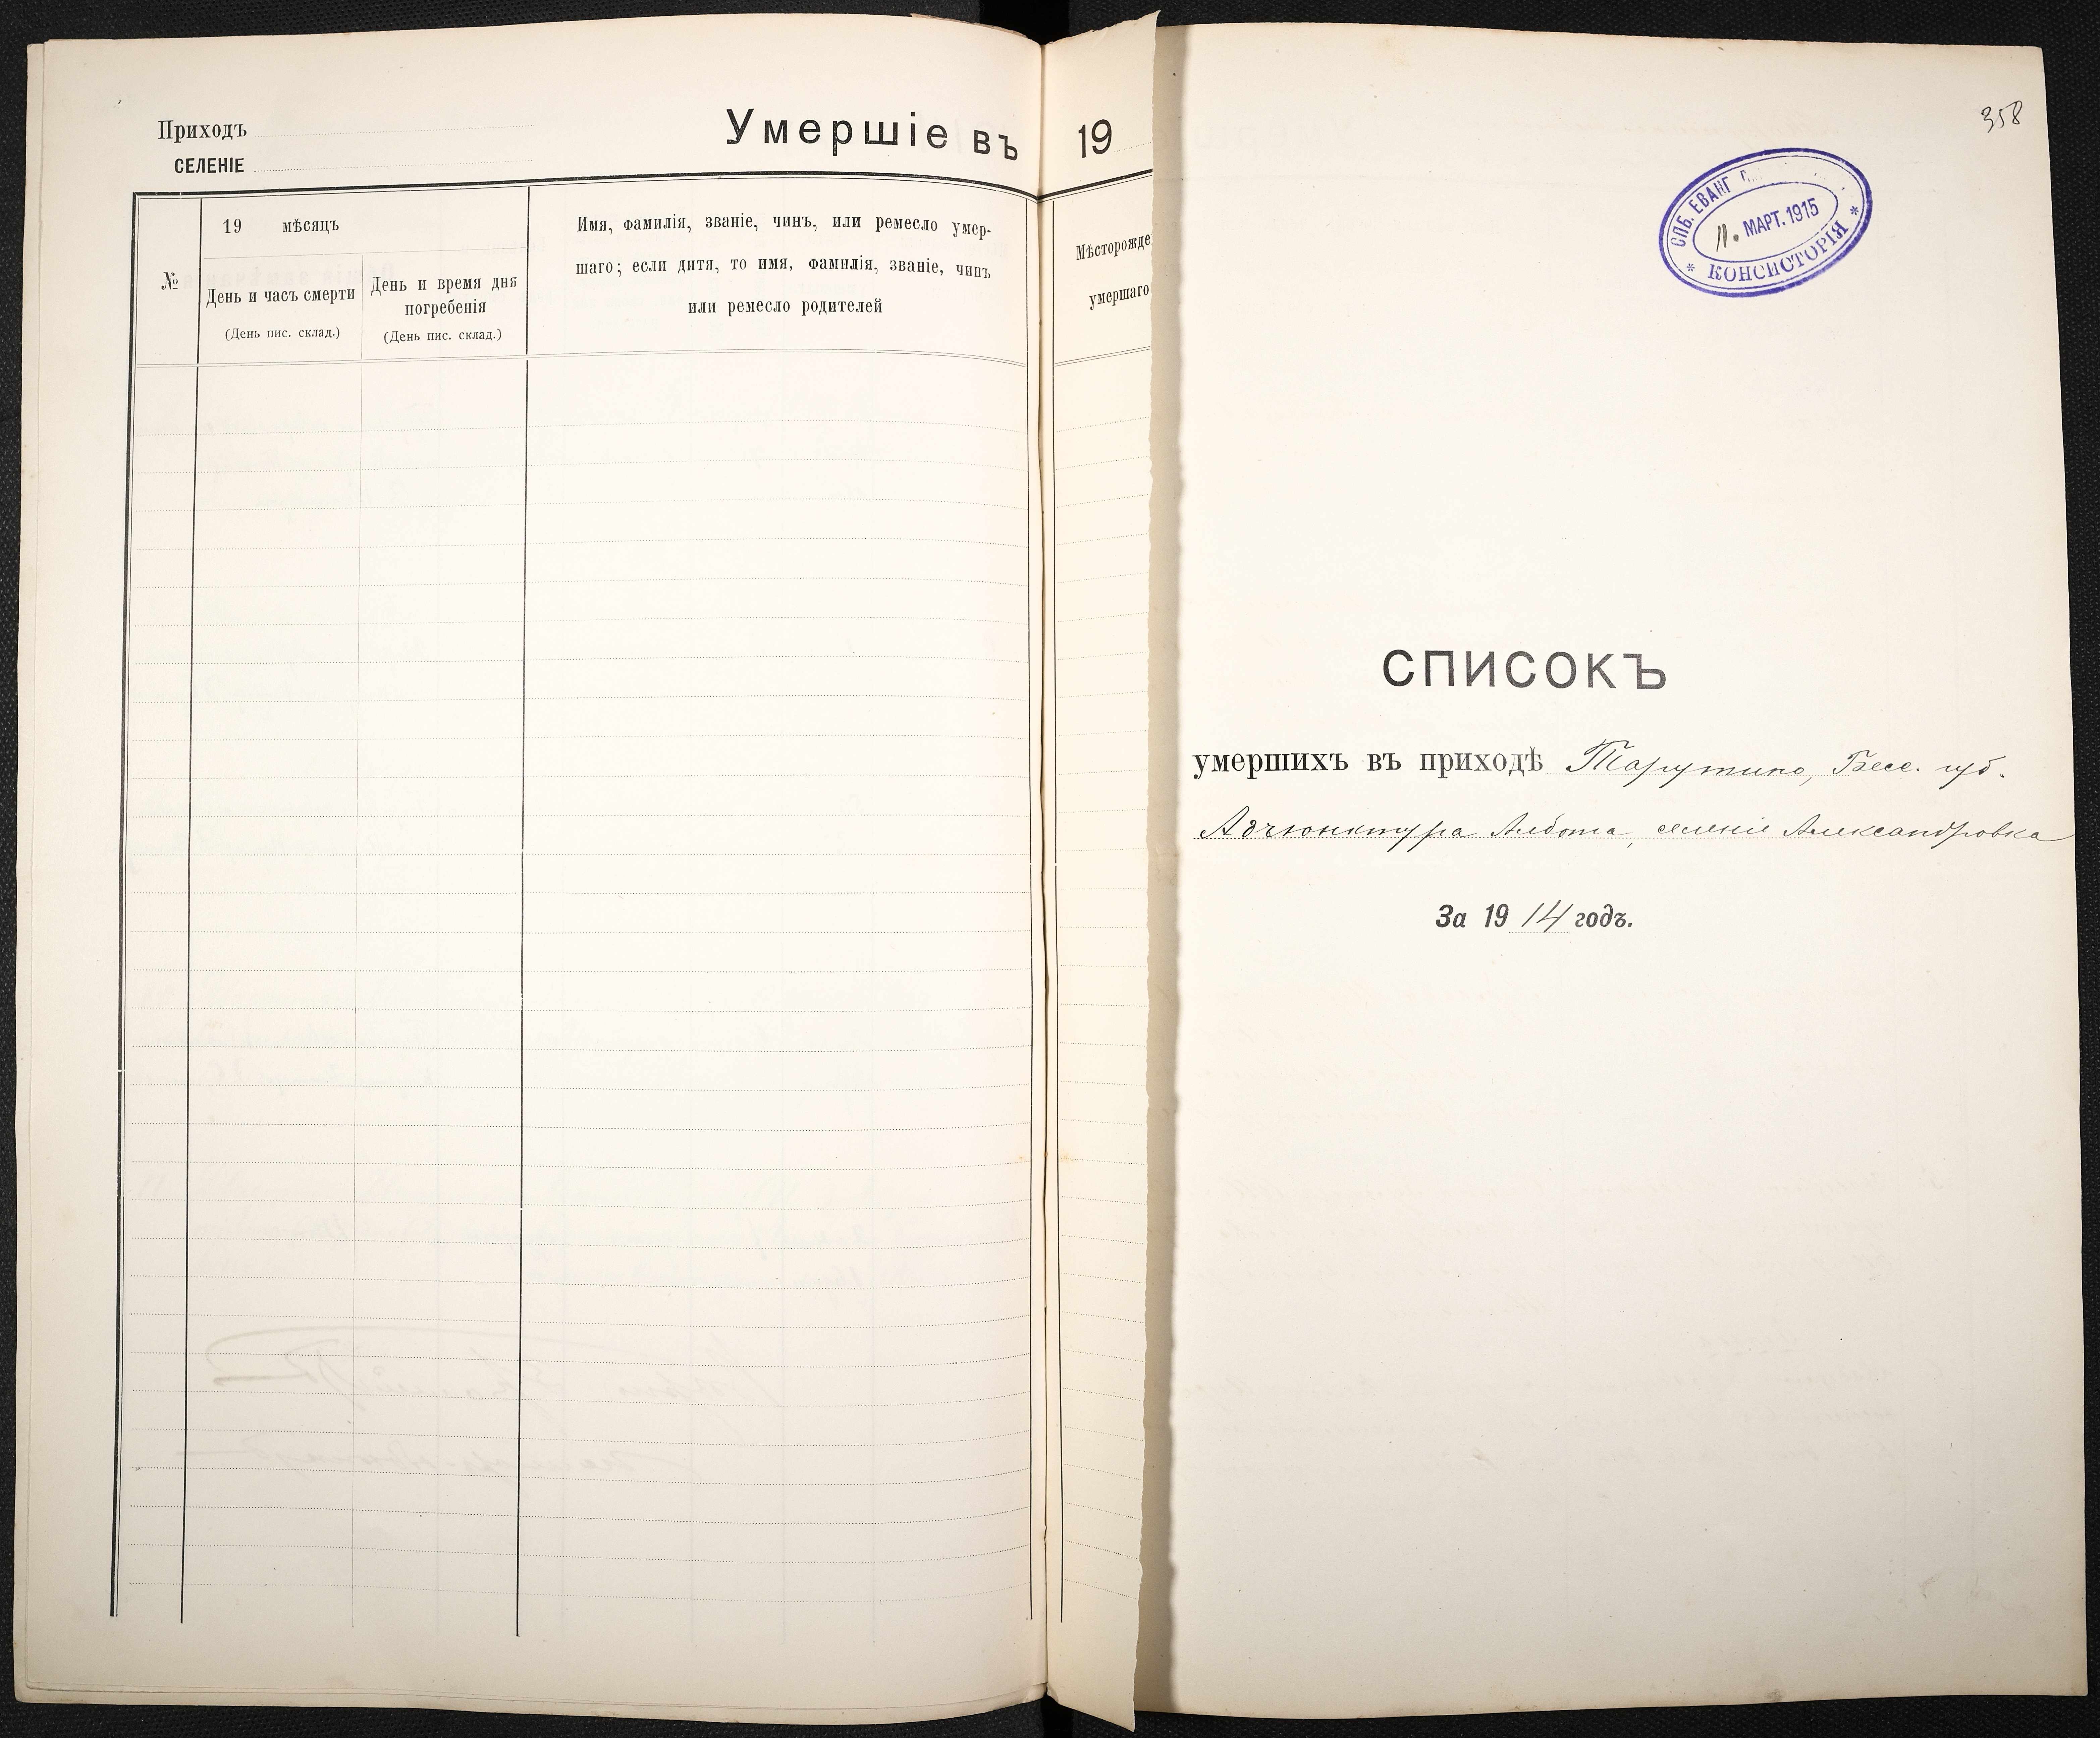 Приходъ
СЕЛЕНІЕ
Умершіе въ 19
№
19 мѣсяцъ
День и часъ смерти
(День пис. склад.)
День и время дня
погребенія
(День пис. склад.)
Имя, фамилія, званіе, чинъ, или ремесло умер-
шаго; если дитя, то имя, фамилія, званіе, чинъ
или ремесло родителей
Мѣсторожде
умершаго
358
СПБ. ЕВАНГ
11. МАРТ. 1915
* КОНСИСТОРІЯ *
СПИСОКЪ
умершихъ въ приходѣ Тарутино, Бесс. губ.
Адъюнктура Албота, селеніе Александровка
За 1914 годъ.